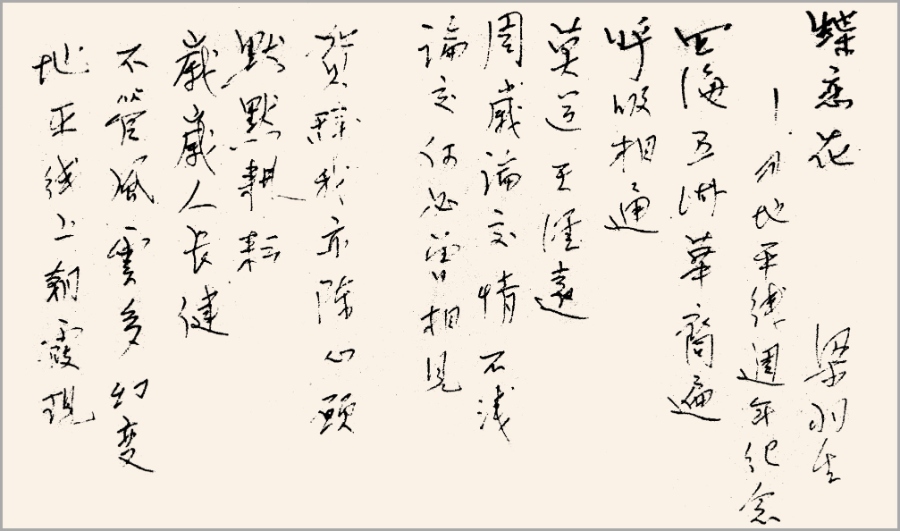 蝶恋花 梁羽生
—为地平线週年纪念
四海五洲華裔遍
呼吸相通
莫道天涯遠
周歲論交情不浅
論交何必曾相見
贺辞我亦陈心願
默默耕耘
歲歲人長健
不管风雲多幻变
地平线上朝霞現